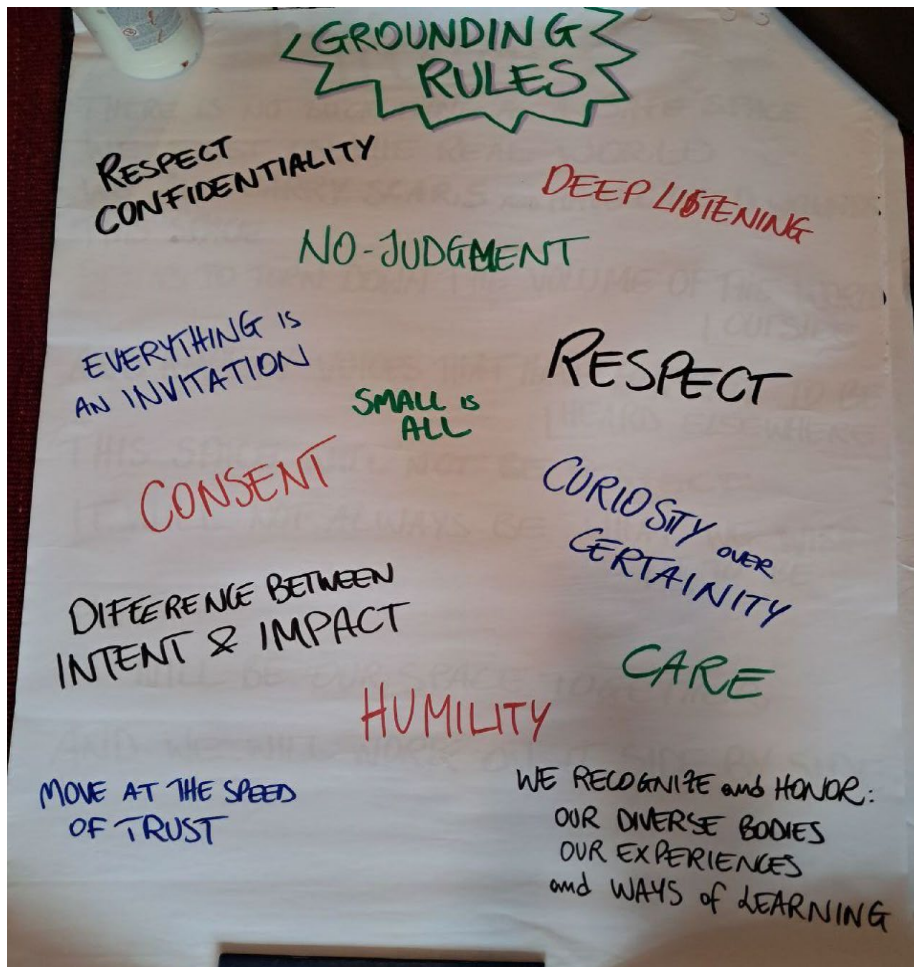 GROUNDING
RULES
RESPECT
CONFIDENTIALITY
DEEP LISTENING
NO-JUDGMENT
EVERYTHING IS
AN INVITATION
RESPECT
SMALL IS
ALL
CONSENT
CURIOSITY OVER
CERTAINITY
DIFFERENCE BETWEEN
INTENT & IMPACT
CARE
HUMILITY
MOVE AT THE SPEED
OF TRUST
WE RECOGNIZE and HONOR:
OUR DIVERSE BODIES
OUR EXPERIENCES
and WAYS of LEARNING